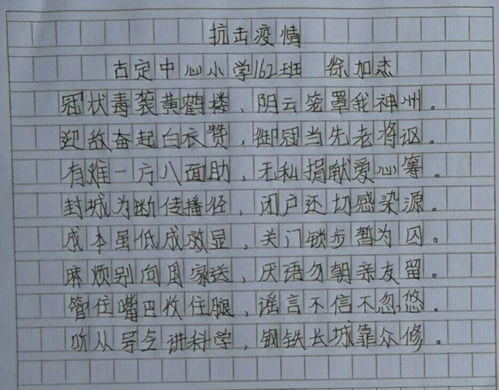 抗击疫情
古定中心小学162班 徐加杰
冠状毒袭黄鹤楼，阴云笼罩我神州。
迎敌奋起白衣赞，御寇当先老将讴。
有难一方八面助，无私捐献爱心筹。
封城为断传播径，闭户还切感染源。
成本虽低成效显，关门锁步暂为囚。
麻烦别向国家送，厌语勿朝亲友留。
管住嘴巴收住腿，谣言不信不忽悠。
听从号令讲科学，钢铁长城靠众修。